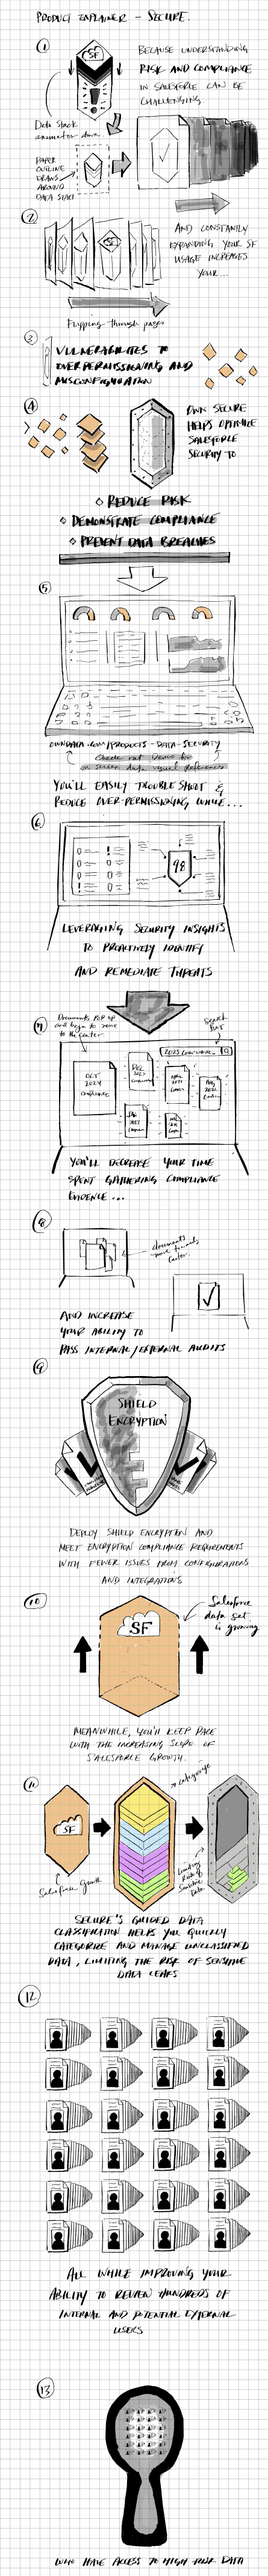 PRODUCT EXPLAINER - SECURE.
1
SF
BECAUSE UNDERSTANDING
RISK AND COMPLIANCE
IN SALESFORCE CAN BE
CHALLENGING.
Data Stack
animates down
PAPER
OUTLINE
DRAWS
AROUND
DATA STACK
2
SF
AND CONSTANTLY
EXPANDING YOUR SF
USAGE INCREASES
YOUR...
Flipping through pages
3
VULNERABILITES TO
OVERPERMISSIONING AND
MISCONFIGURATION
4
OWN SECURE
HELPS OPTIMIZE
SALESFORCE
SECURITY TO
REDUCE RISK
DEMONSTRATE COMPLIANCE
PREVENT DATA BREACHES
5
OWNDATA.COM/PRODUCTS-DATA-SECURITY
Check out Demo for
on screen data visual reference
YOU'LL EASILY TROUBLESHOOT &
REDUCE OVER-PERMISSIONING WHILE...
6
98
LEVERAGING SECURITY INSIGHTS
TO PROACTIVELY IDENTIFY
AND REMEDIATE THREATS
7
Documents pop up
and begin to move
to the center
Search
Bar
2023 Compliance
OCT
2024
Compliance
DEC
2023
AUG
2022
JAN
2022
YOU'LL DECREASE YOUR TIME
SPENT GATHERING COMPLIANCE
EVIDENCE...
8
documents
move towards
center
AND INCREASE
YOUR ABILITY TO
PASS INTERNAL/EXTERNAL AUDITS
9
SHIELD
ENCRYPTION
DEPLOY SHIELD ENCRYPTION AND
MEET ENCRYPTION COMPLIANCE REQUIREMENTS
WITH FEWER ISSUES FROM CONFIGURATIONS
AND INTEGRATIONS
10
SF
Salesforce
data set
is growing
MEANWHILE, YOU'LL KEEP PACE
WITH THE INCREASING SCOPE OF
SALESFORCE GROWTH.
11
categorize
SF
Salesforce Growth
Limiting
Risk of
Sensitive
Data
SECURE'S GUIDED DATA
CLASSIFICATION HELPS YOU QUICKLY
CATEGORIZE AND MANAGE UNCLASSIFIED
DATA, LIMITING THE RISK OF SENSITIVE
DATA LEAKS
12
ALL WHILE IMPROVING YOUR
ABILITY TO REVIEW HUNDREDS OF
INTERNAL AND POTENTIAL EXTERNAL
USERS
13
WHO HAVE ACCESS TO HIGH RISK DATA